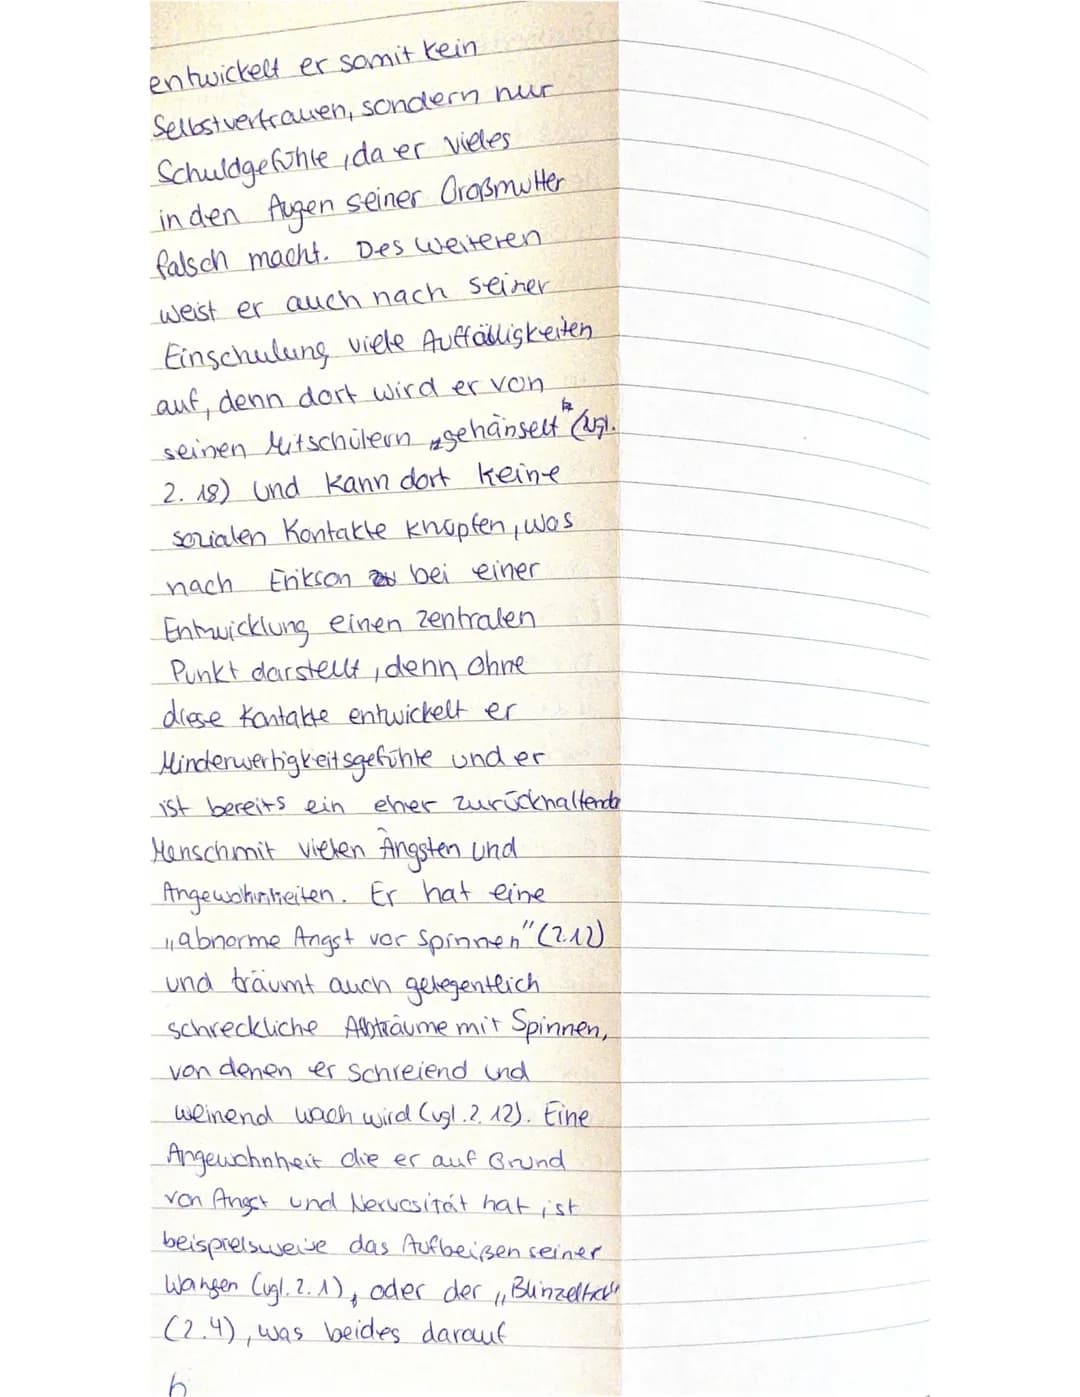 entwickelt er somit kein
Selbstvertrauen, sondern nur
Schuldgefühle, da er vieles
in den Augen seiner Großmutter
falsch macht. Des Weiteren
weist er auch nach seiner
Einschulung viele Auffälligkeiten
auf, denn dort wird er von
seinen Mitschülern „gehänselt" (vgl.
Z. 18) und kann dort keine
sozialen Kontakte knüpfen, was
nach Erikson bei einer
Entwicklung einen zentralen
Punkt darstellt, denn ohne
diese Kontakte entwickelt er
Minderwertigkeitsgefühle und er
ist bereits ein eher zurückhaltender
Mensch mit vielen Ängsten und
Angewohnheiten. Er hat eine
„abnorme Angst vor Spinnen" (Z.12)
und träumt auch gelegentlich
schreckliche Albträume mit Spinnen,
von denen er schreiend und
weinend wach wird (vgl. Z. 12). Eine
Angewohnheit die er auf Grund
von Angst und Nervosität hat, ist
beispielsweise das Aufbeißen seiner
Wangen (vgl. Z. 1), oder der „Blinzeltick"
(Z.4), was beides darauf
6